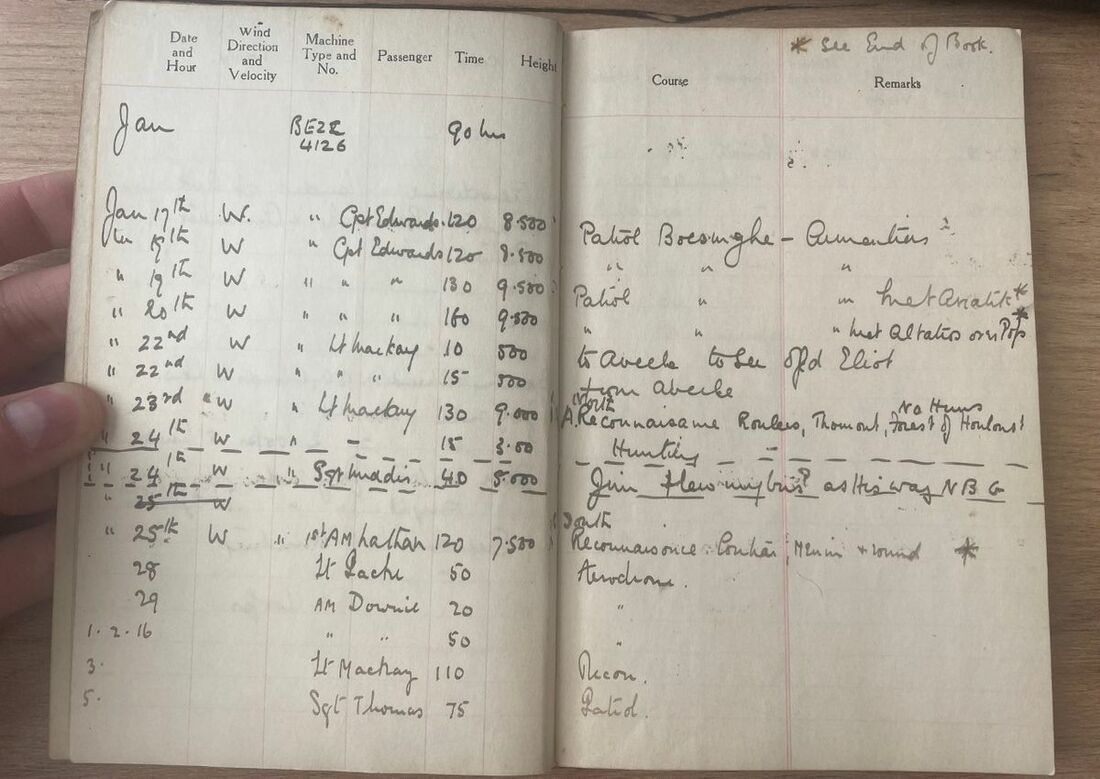 Date and Hour Wind Direction and Velocity Machine Type and No. Passenger Time Height
* See End of Book.
Course Remarks
Jan BE2E 4126 90 hrs
Jan 17th W. " Cpt Edwards. 120 8.500 Patrol Boesinghe -
18th W " Cpt Edwards 120 8.500 " " "
" 19th W " " " 130 9.500 Patrol " " met Aviatik *
" 20th W " " " 160 9.500 " " " met Albatros over Pop *
" 22nd W " Lt Mackay 10 500 to Abeele to see Eliot
" 22nd W " " " 15 500 from Abeele
" 23rd " W " Lt Mackay 130 9.000 North Reconnaisance Roulers, Thourout, Forest of No Huns
" 24th W " - 15 3.00 Hunting -
" 24th W " Sgt 40 5.000 Jim flew my bus as His was N B G
25th W
" 25th W " 1st AM 120 7.500 South Reconnaisance. Menin & round *
28 Lt 50 Aerodrome.
29 AM Downie 20 "
1. 2. 16 " " 50 "
3. Lt Mackay 110 Recon.
5. Sgt Thomas 75 Patrol.